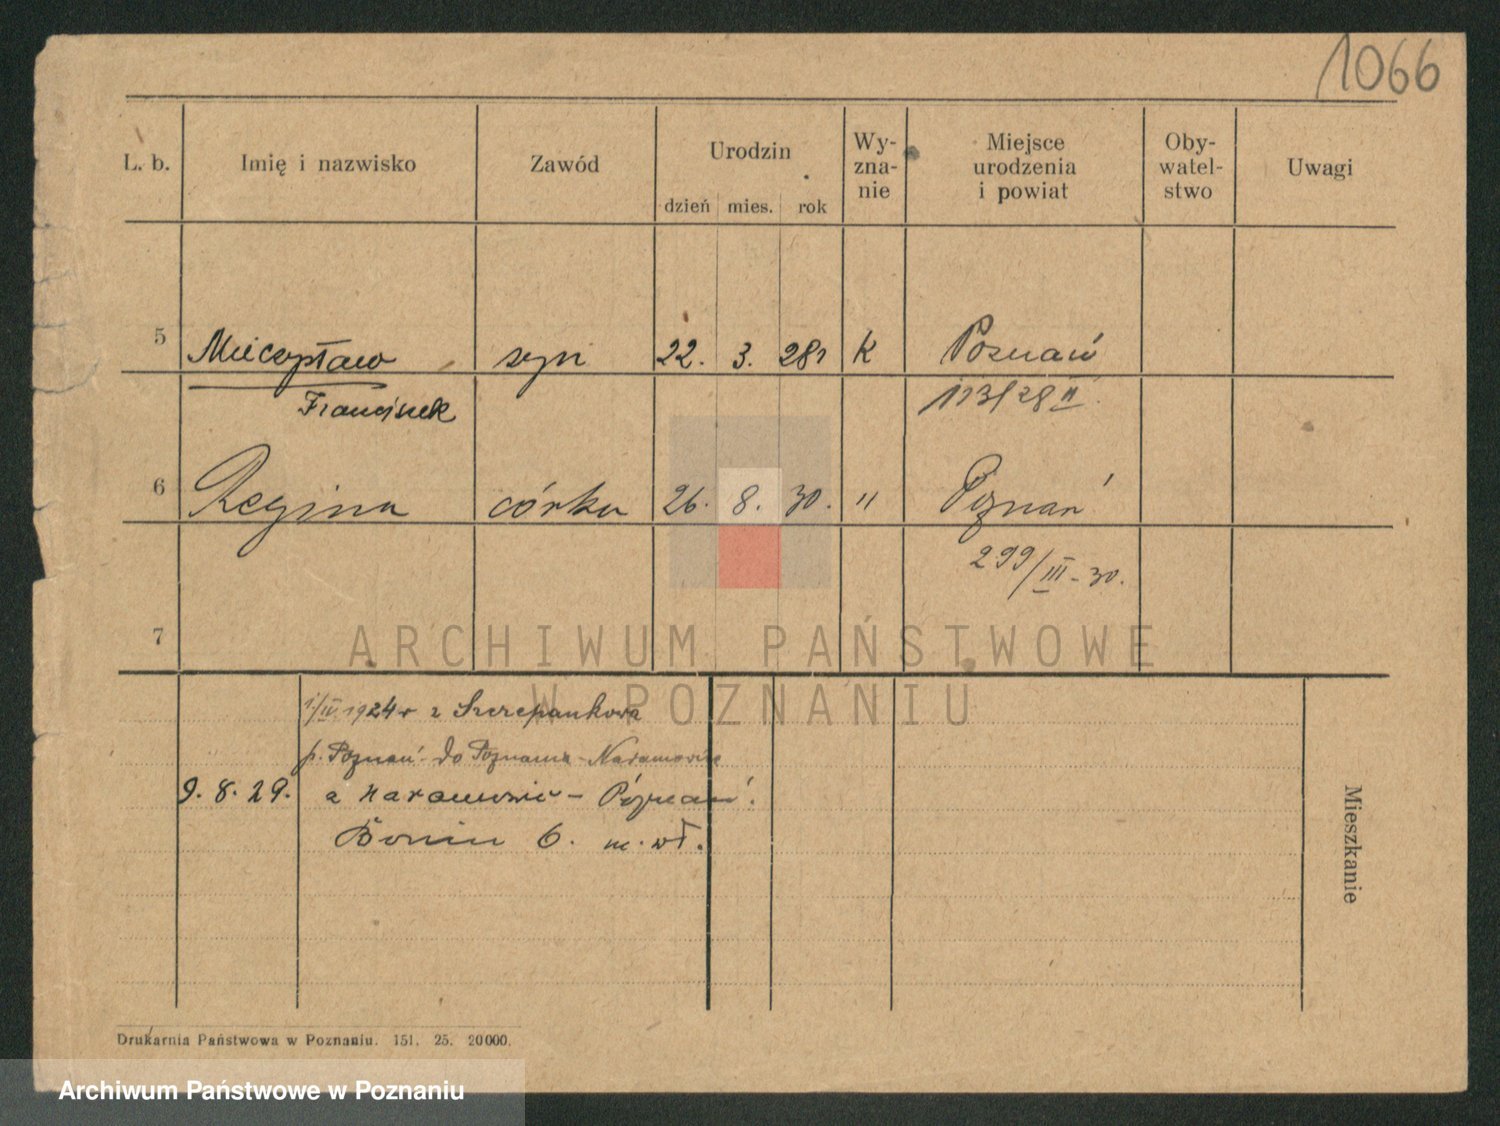 1066
L. b. Imię i nazwisko Zawód Urodzin dzień mies. rok Wy- zna- nie Miejsce urodzenia i powiat Oby- watel- stwo Uwagi
5 Mieczysław syn 22. 3. 28r K Poznań
Franciszek 113/28 II
6 Regina córka 26. 8. 30. " Poznań
299/III-30.
7
ARCHIWUM PAŃSTWOWE
W POZNANIU
1/IV 1924 r z Szczepankowa
p. Poznań do Poznania-Naramowic
9. 8. 29. z Naramowic - Poznań.
Bonin 6. m. wł.
Mieszkanie
Drukarnia Państwowa w Poznaniu. 151. 25. 20000.
Archiwum Państwowe w Poznaniu